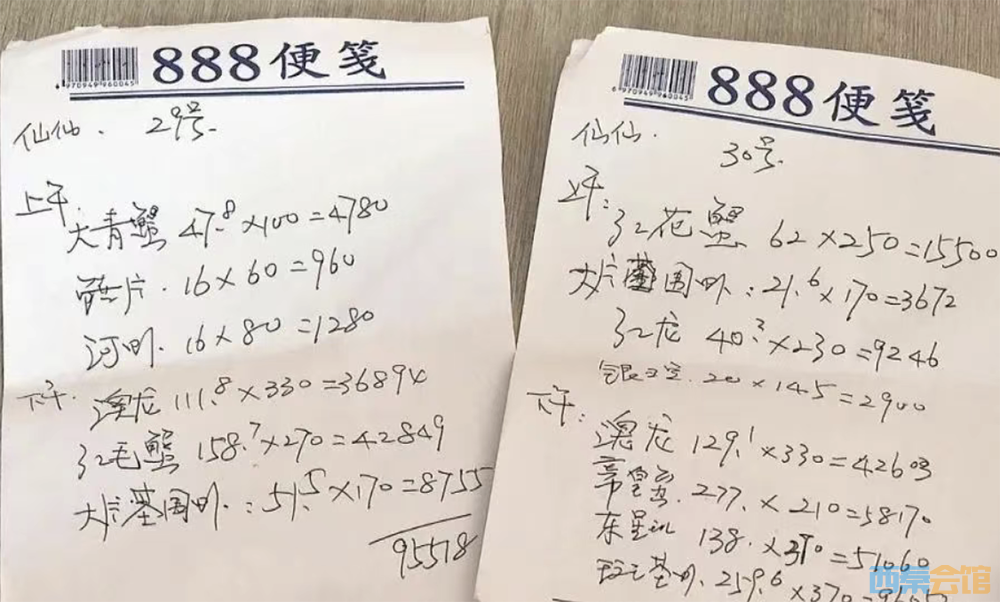 6 970949 960045
888便笺
仙仙. 29号.
上午. 大青蟹 47.8×100=4780
16×60=960
河虾. 16×80=1280
下午. 澳龙 111.8×330=36894
红毛蟹 158.7×270=42849
大片基围虾.: 51.5×170=8755
95518
6 970949 960045
888便笺
仙仙. 30号.
上午: 红花蟹 62×250=15500
大片基围虾: 21.6×170=3672
红龙 40.2×230=9246
20×145=2900
下午: 澳龙 129.1×330=42603
帝皇蟹. 277.×210=58170
东星斑 138.×370=51060
基虾. 259.6×370=
西秦会馆